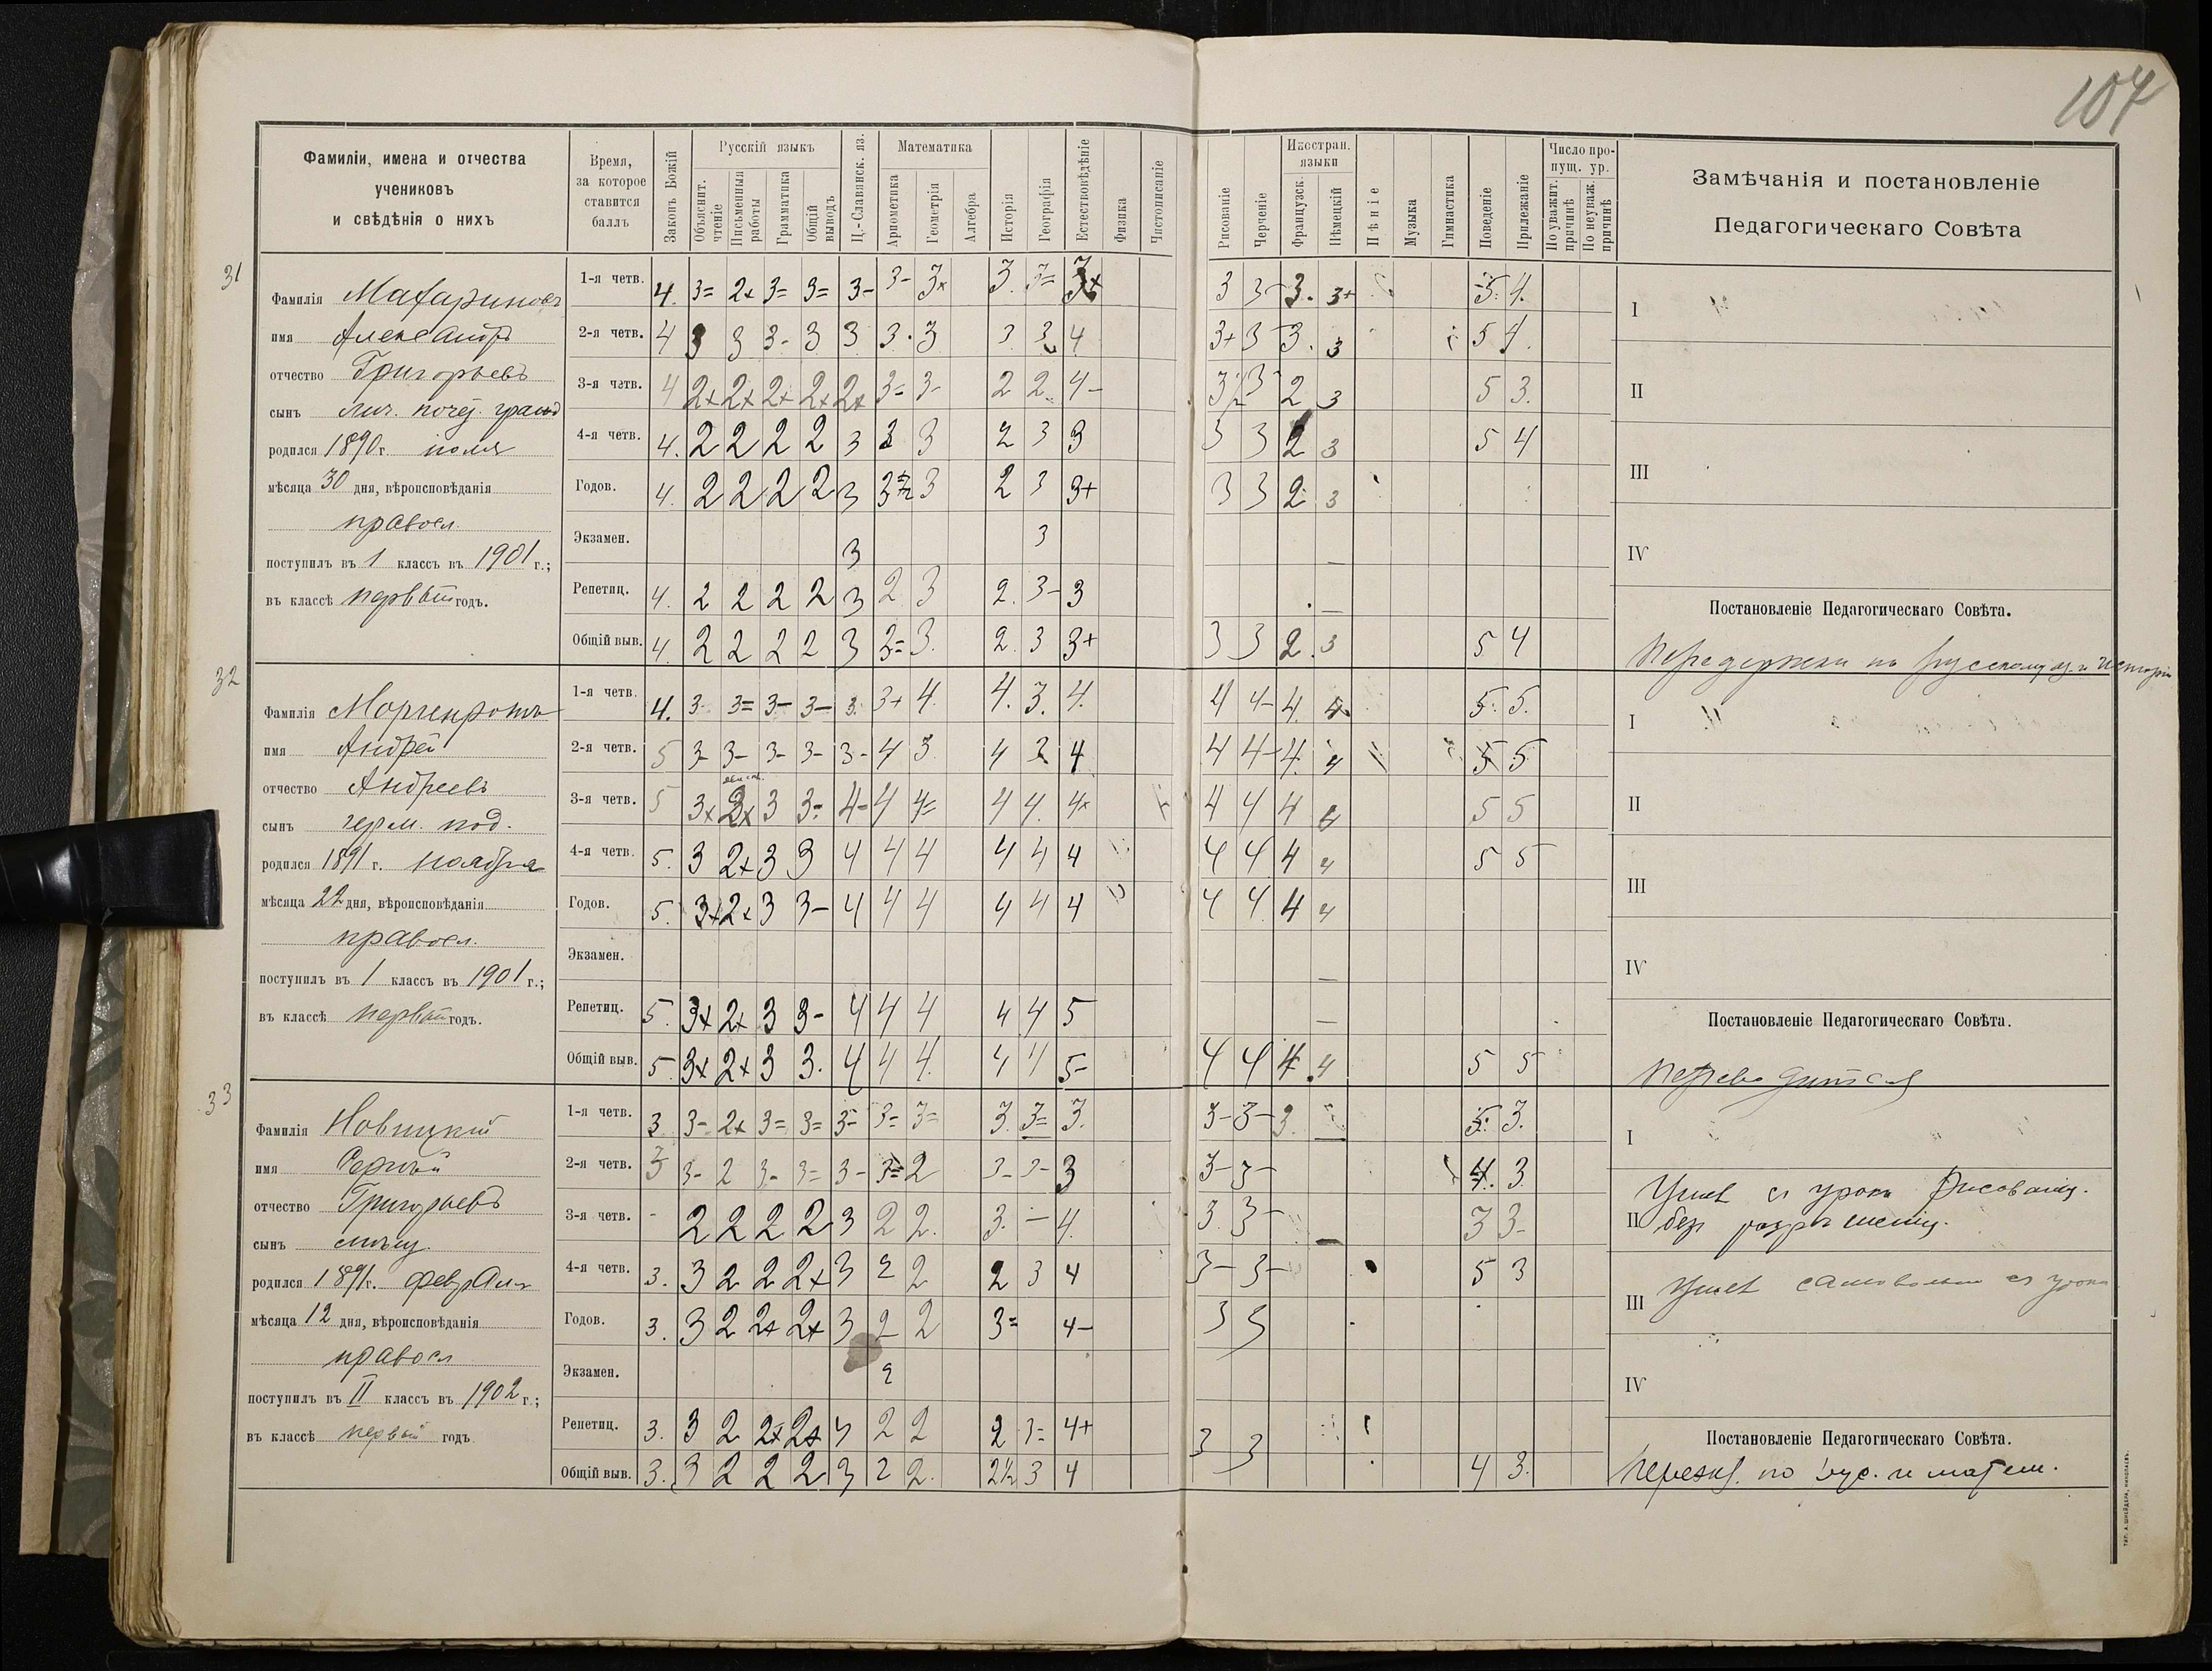 107
Фамиліи, имена и отчества
учениковъ
и свѣдѣнія о нихъ
Время,
за которое
ставится
баллъ
Законъ Божій
Русскій языкъ
Объяснит.
чтеніе
Письменныя
работы
Грамматика
Общій
выводъ
Ц.-Славянск. яз.
Математика
Ариѳметика
Геометрія
Алгебра
Исторія
Географія
Естествовѣдѣніе
Физика
Чистописаніе
Рисованіе
Черченіе
Иностран.
языки
Французск.
Нѣмецкій
Пѣніе
Музыка
Гимнастика
Поведеніе
Прилежаніе
Число про-
пущ. ур.
По уважит.
причинѣ
По неуваж.
причинѣ
Замѣчанія и постановленіе
Педагогическаго Совѣта
31
Фамилія
имя Александръ
отчество Григорьевъ
сынъ лич. поч. гражд
родился 1890 г. іюля
мѣсяца 30 дня, вѣроисповѣданія
правосл.
поступилъ въ 1 классъ въ 1901 г.;
въ классѣ первый годъ.
1-я четв. 4. 3= 2+ 3= 3= 3- 3- 3+ 3. 3= 3+ 3 3- 3. 3+ 5. 4.
2-я четв. 4 3 3 3- 3 3 3. 3 3 3 4 3+ 3 3. 3 5 4.
3-я четв. 4 2+ 2+ 2+ 2+ 2+ 3= 3- 2 2 4- 3 3 2 3 5 3.
4-я четв. 4. 2 2 2 2 3 3 3 2 3 3 3 3 2 3 5 4
Годов. 4. 2 2 2 2 3 3 3 2 3 3+ 3 3 2 3
Экзамен. 3 3
Репетиц. 4. 2 2 2 2 3 2 3 2. 3- 3
Общій выв. 4. 2 2 2 2 3 3= 3. 2. 3 3+ 3 3 2. 3 5 4
I
II
III
IV
Постановленіе Педагогическаго Совѣта.
Передержки по русскому яз. и Исторіи
32
Фамилія Моргенротъ
имя Андрей
отчество Андреевъ
сынъ герм. под.
родился 1891 г. ноября
мѣсяца 22 дня, вѣроисповѣданія
правосл.
поступилъ въ 1 классъ въ 1901 г.;
въ классѣ первый годъ.
1-я четв. 4. 3- 3= 3- 3- 3. 3+ 4. 4. 3. 4. 4 4- 4. 4. 5. 5.
2-я четв. 5 3- 3- 3- 3- 3- 4 3 4 3 4 4 4- 4. 4 5 5
3-я четв. 5 3+ 2+ 3 3= 4- 4 4= 4 4. 4+ 4 4 4 4 5 5
4-я четв. 5. 3 2+ 3 3 4 4 4 4 4 4 4 4 4 4 5 5
Годов. 5. 3+ 2+ 3 3- 4 4 4 4 4 4 4 4 4 4
Экзамен.
Репетиц. 5. 3+ 2+ 3 3- 4 4 4 4 4 5
Общій выв. 5 3+ 2+ 3 3. 4 4 4. 4 4 5- 4 4 4 4 5 5
I
II
III
IV
Постановленіе Педагогическаго Совѣта.
Переводится
33
Фамилія Новицкій
имя Сергѣй
отчество Григорьевъ
сынъ
родился 1891 г. февраля
мѣсяца 12 дня, вѣроисповѣданія
правосл
поступилъ въ II классъ въ 1902 г.;
въ классѣ первый годъ
1-я четв. 3 3- 2+ 3= 3= 3- 3= 3= 3. 3= 3. 3- 3- 3. 5. 3.
2-я четв. 3 3- 2 3- 3= 3- 3= 2 3- 3- 3 3- 3- 4. 3
3-я четв. - 2 2 2 2 3 2 2. 3. - 4. 3. 3- 3 3-
4-я четв. 3. 3 2 2 2+ 3 2 2 2 3 4 3- 3- 5 3
Годов. 3. 3 2 2+ 2+ 3 2 2 3= 4- 3 3
Экзамен. 2
Репетиц. 3. 3 2 2+ 2+ 3 2 2 2 3= 4+ 3 3
Общій выв. 3. 3 2 2 2 3 2 2. 2½ 3 4 4 3.
I
Ушел съ урока Рисованія.
II без разрѣшенія.
III Ушел самовольно съ урока
IV
Постановленіе Педагогическаго Совѣта.
по рус. и матем.
ТИП. А. ШНЕЙДЕРА, НИКОЛАЕВЪ.